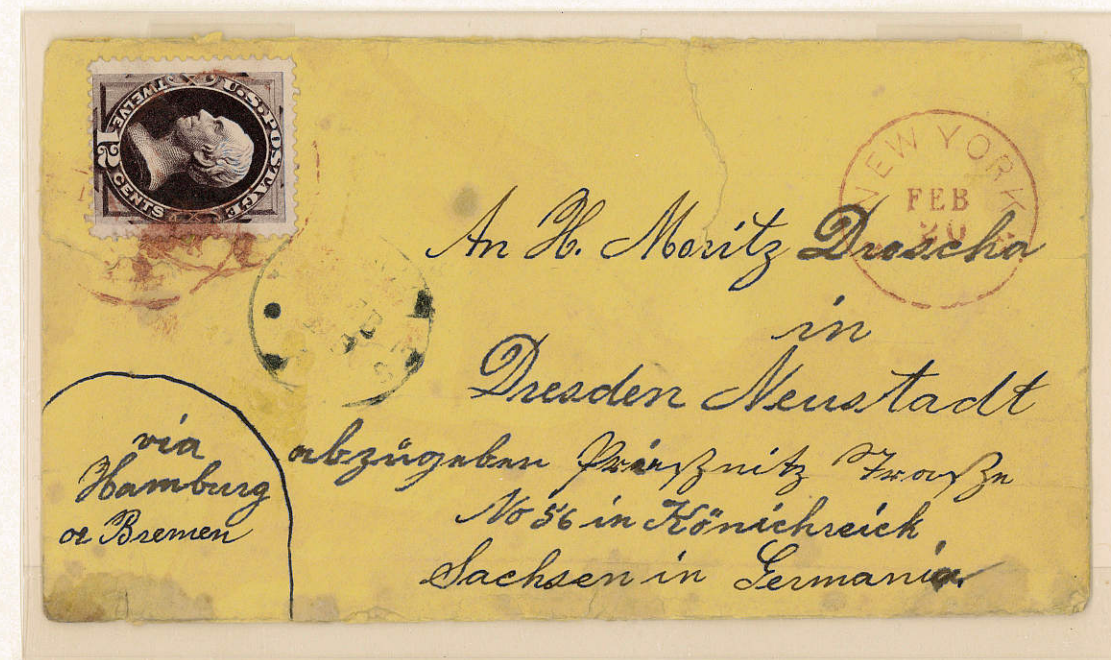 U.S. POSTAGE
TWELVE
12
CENTS
NEW YORK
FEB
20
An H. Moritz Droscha
in
Dresden Neustadt
abzügeben Prießnitz Straße
No 56 in Könighreich
Sachsen in Germania.
via
Hamburg
or Bremen